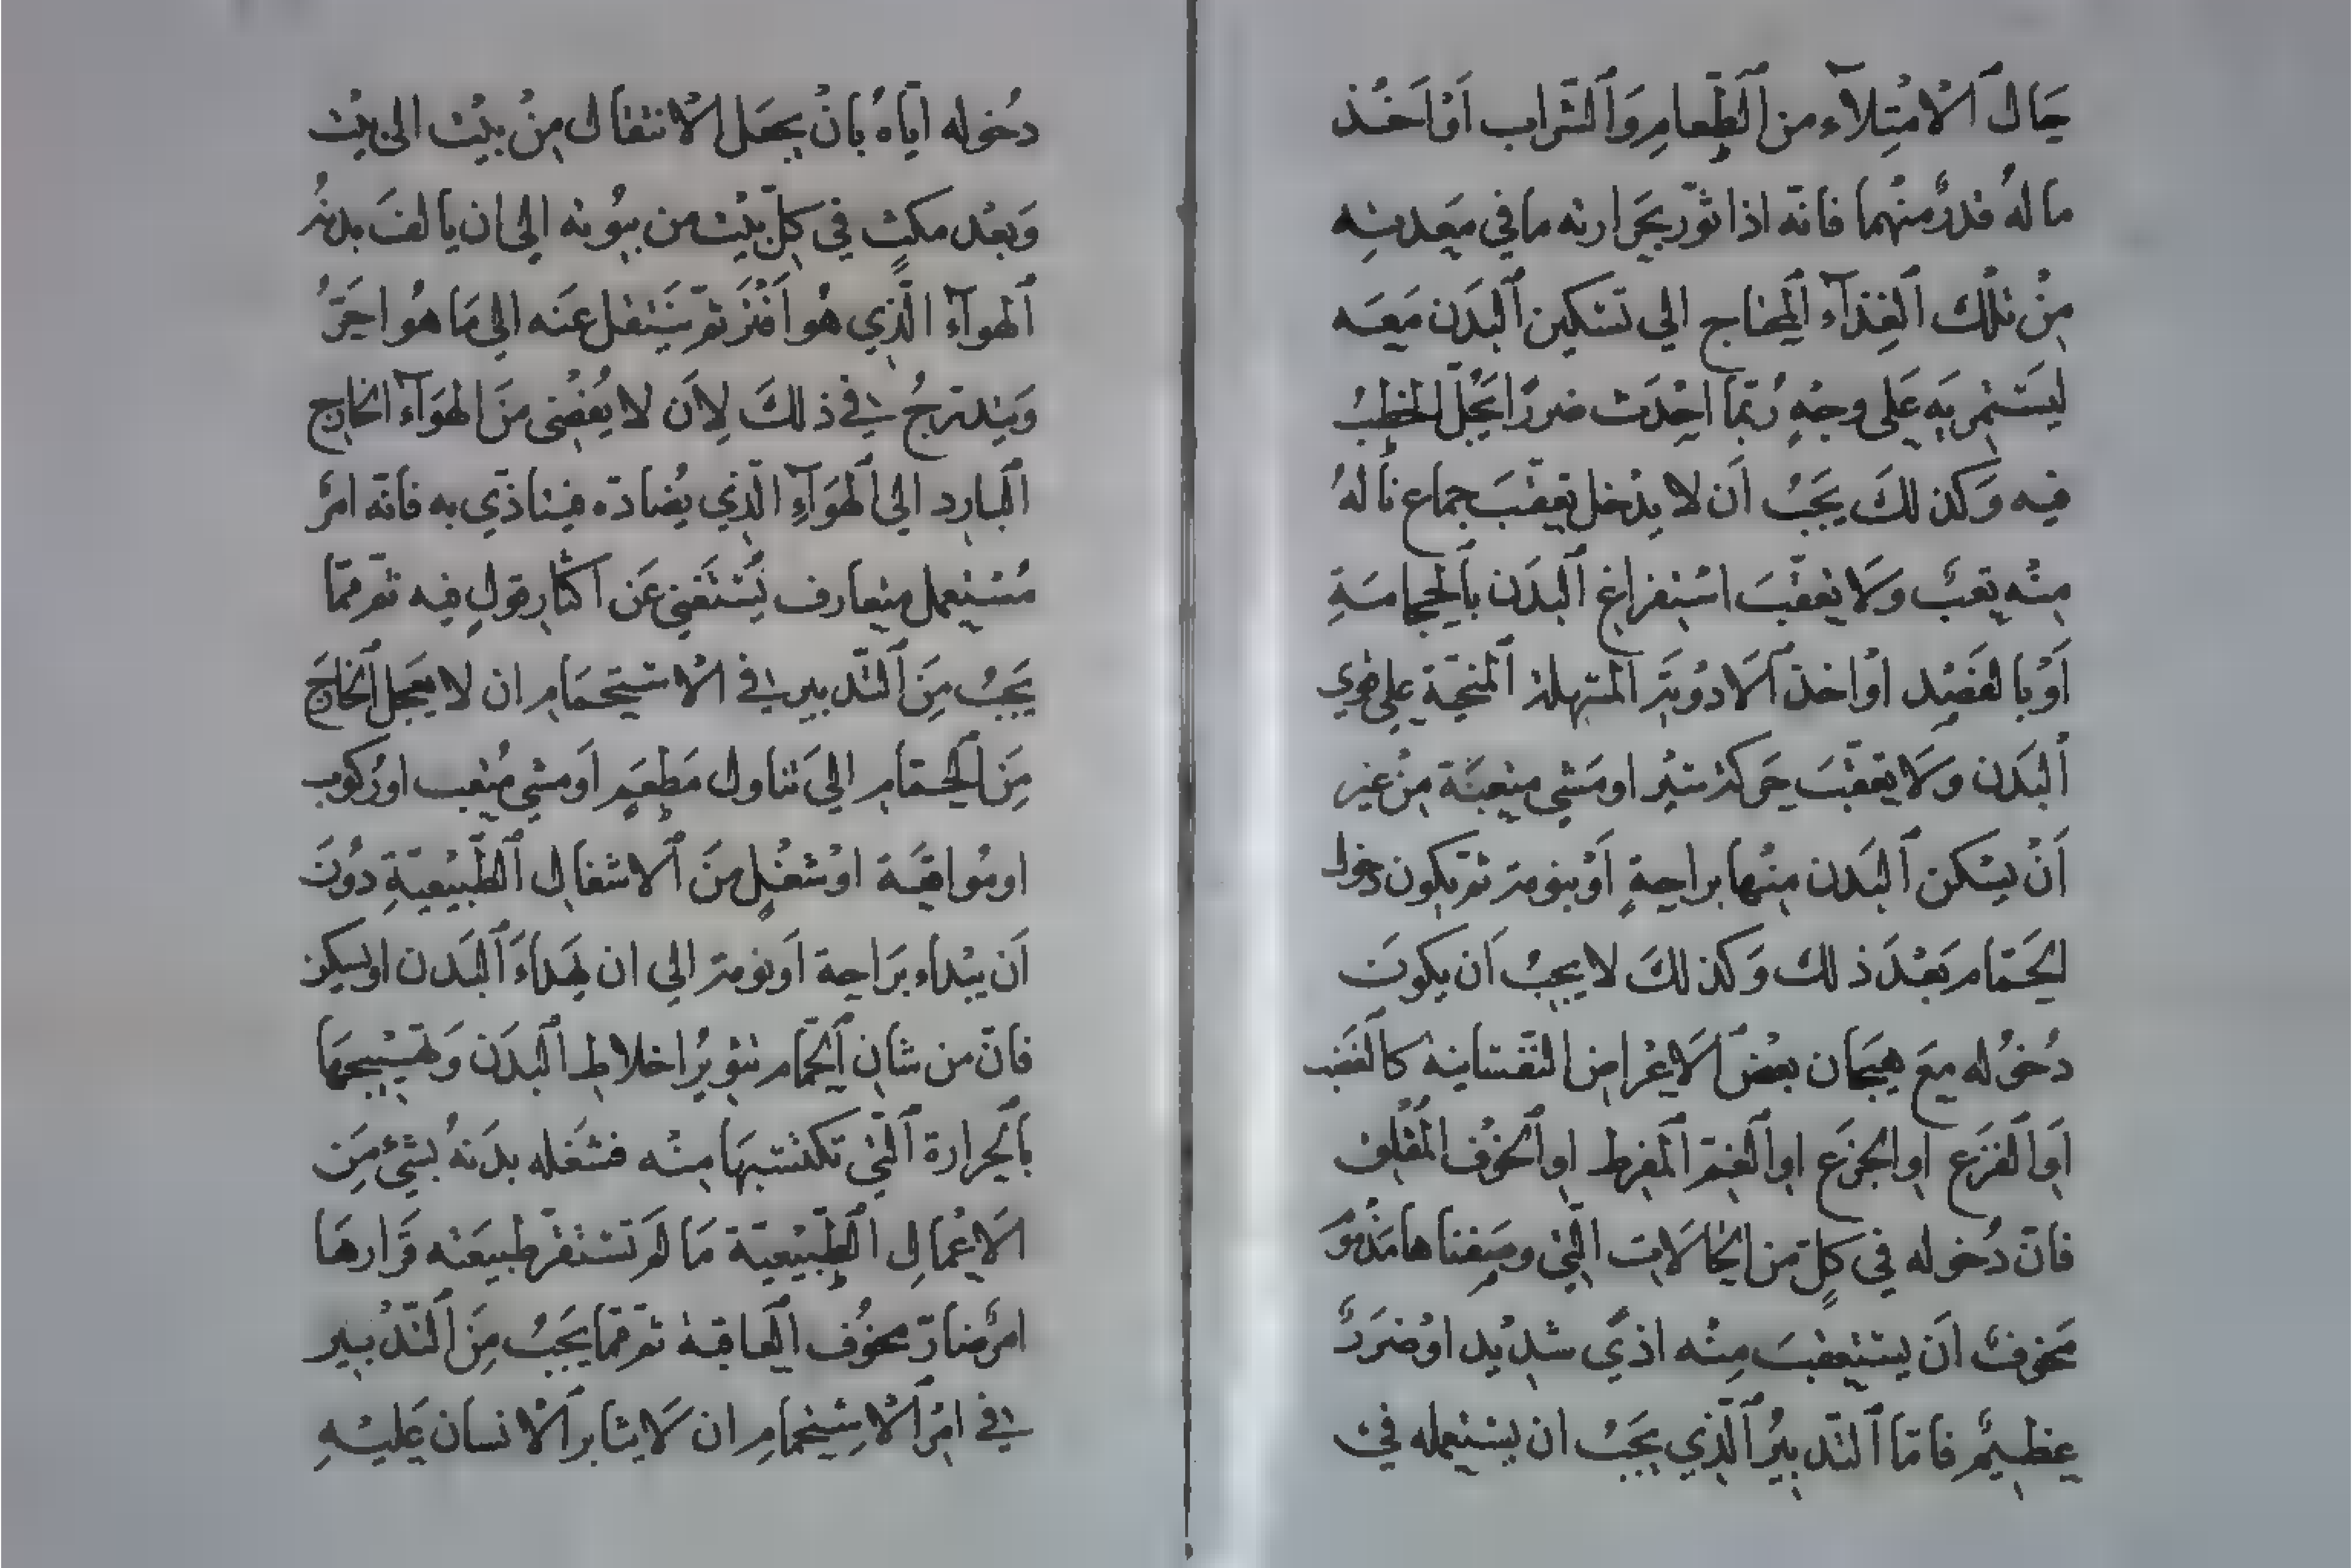 حَال الامْتِلآء من الطّعامِ وَالشّراب اَوْ اَخْذ
ما لهُ قدرٌ منْهما فانّه اذا ثوّر بحَرارته ما في مَعِدته
مِنْ تلْك الغِذآء المحتاج الي تَسْكين البَدَن مَعَه
ليَسْتمْرِيَه عَلى وجْهٍ رُبّما احْدَث ضررًا يَجُلّ الخطبُ
فيه وَكذلكَ يَجَبُ اَن لا يدْخل بعقْبَ جماع نالهُ
مِنْه تعبٌ ولَا بعقْبَ اسْتفراغ البدَن بالحِجامَةِ
اَوْ بالفَصْد اوْ اخذ الاَدوْيَة المسْهلة المنحية علي قوي
البَدَن ولَا بعقْبَ حَركة سَيْر او مَشْي متعبَة مِنْ غير
اَنْ يسْكن البَدن مِنْها براحةٍ اَوْ بنومة ثم يكون دخول
الحَمّام بَعْدَ ذلك وَكذلكَ لا يجبُ اَن يكونَ
دُخوُله معَ هيجَان بعْض الاَعْراض النفسانيه كالغَضب
اَو الفزَع او الجزَع او الغمّ المفرط او الخوْف المُقْلق
فانّ دُخوله في كلٍّ من الحَالَات الّتي وصَفناها مَذْمُوم
مَخوفٌ اَن يستعقبَ مِنْه اذيً شدْيد اوْ ضرَرٌ
عظيْمٌ فامّا التّدبيْرُ الّذي يَجَبُ ان يستعمله فيْ
دُخوله ايّاهُ بانْ يجعَل الانتقال مِنْ بيْت الى بيْت
وَبعْد مكثٍ في كلّ بيْت من بيوُته الى ان يالفَ بدنهُ
الهوآءَ الّذي هُو اَفْتَرُ ثمّ يَنْتقل عَنه الي مَا هُو احَرُّ
وَيتدرّجُ في ذلكَ لِاَن لا يُفْضى منَ الهوَآء الخارج
البارد الي الهَوَآءِ الّذي يُضادّه فيتاذّي به فانّه امرٌ
مُسْتعمل متعارف يُسْتَغني عَن اكثار قولٍ فيه ثمّ ممّا
يَجَبُ مِنَ التّدبير في الاسْتحْمَام ان لا يعَجل الخارجَ
مِنَ الحمّام الي تناول مَطعَمٍ اَو مشْي مُتْعب او رُكوب
او مُواقعَة اوْ شغْلٍ منَ الاشغال الطّبيْعيّةِ دوُنَ
اَن يبْداء برَاحة اَو نومة الي ان يَهدَاءَ البَدن او يسكن
فانّ من شان الحمّام تثويْرُ اخلاط البَدَن وَتهيْيجهَا
بالحَرارة الّتي تكتسبهَا مِنْه فشغَله بدَنهُ بشيْءٍ مِنَ
الاَعْمال الطّبيْعيّة مَا لم تسْتقرّ طبيعَته قرَارهَا
امرٌ ضارّ مخوُف العاقبة ثمّ ممّا يَجَبُ مِنَ التّدْبير
في امْر الاسْتحْمامِ ان لَا يثابر الاْنسان عَليْهِ